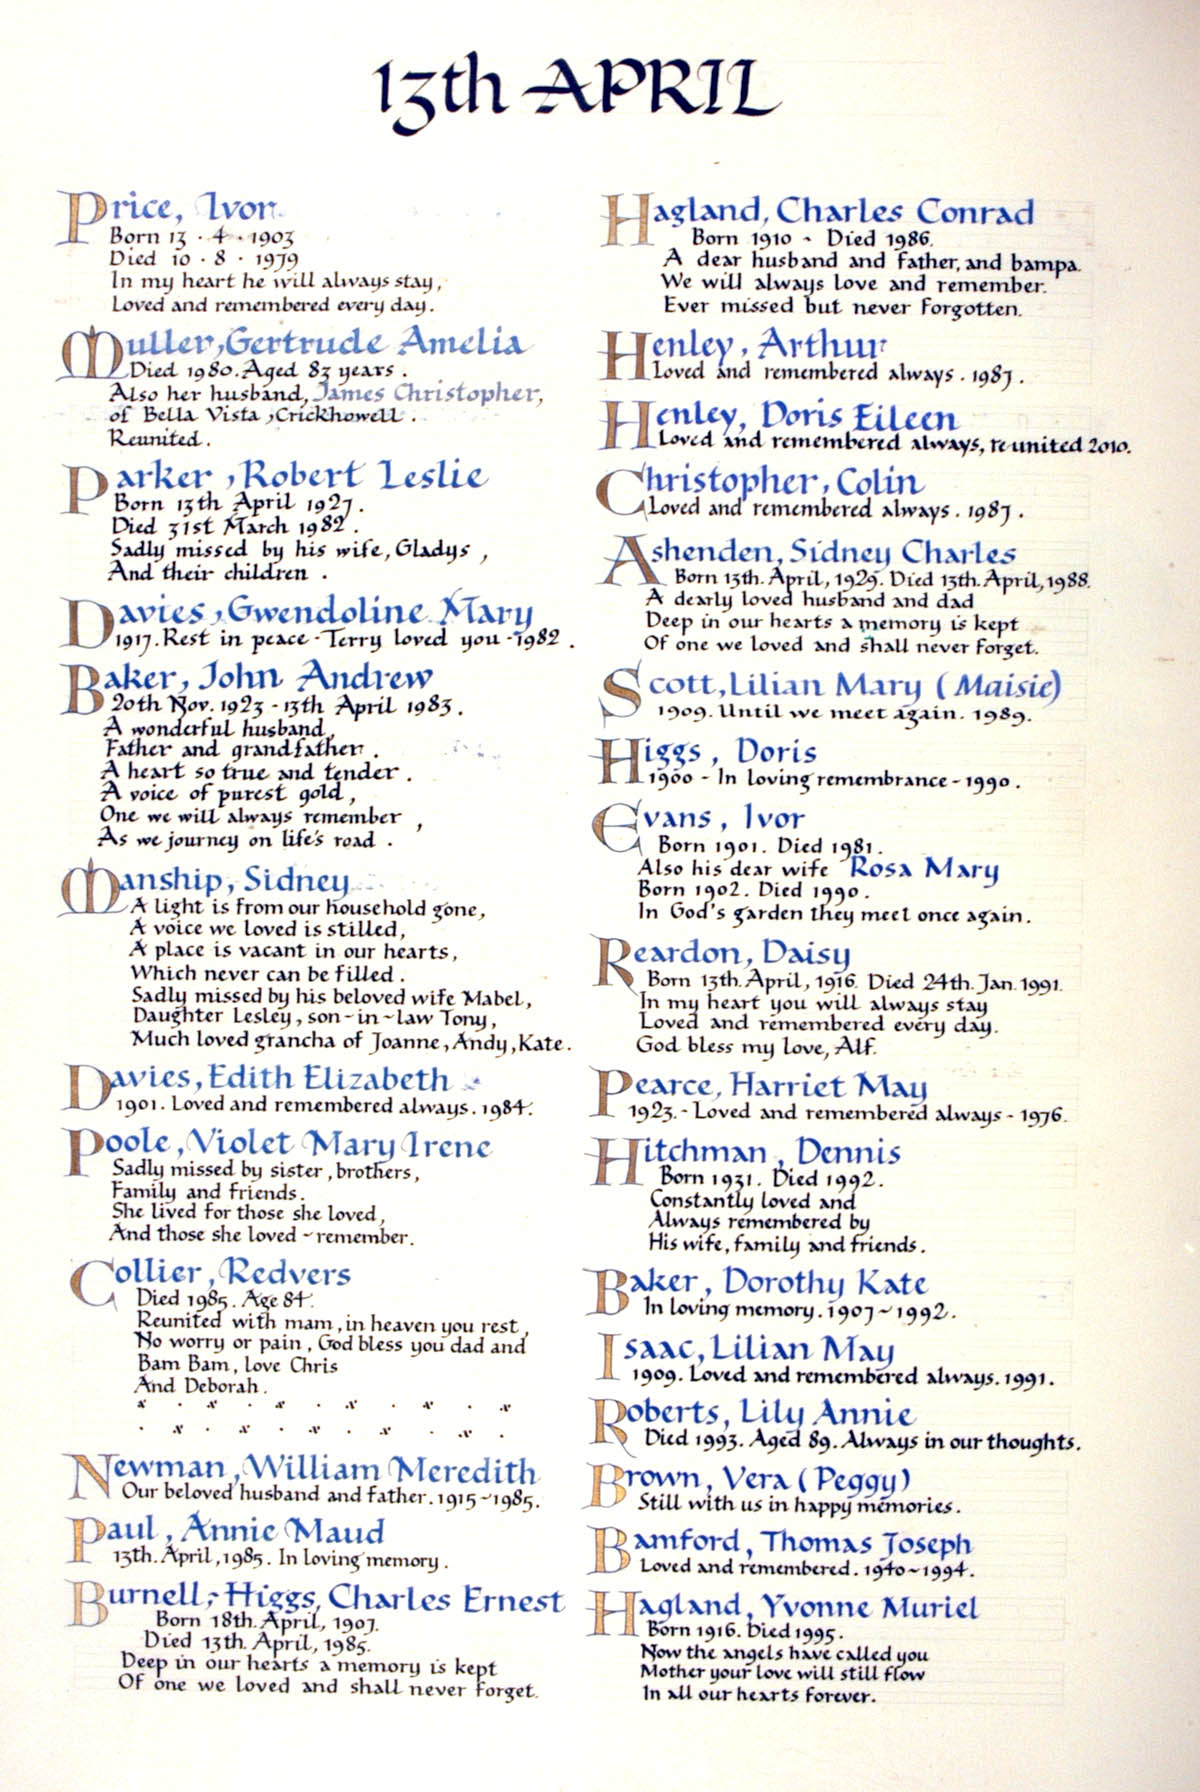 13th APRIL
Price, Ivor
Born 13 · 4 · 1903
Died 10 · 8 · 1979
In my heart he will always stay,
Loved and remembered every day.
Muller, Gertrude Amelia
Died 1980. Aged 83 years.
Also her husband, James Christopher,
of Bella Vista, Crickhowell.
Reunited.
Parker, Robert Leslie
Born 13th April 1927.
Died 31st March 1982.
Sadly missed by his wife, Gladys,
And their children.
Davies, Gwendoline Mary
1917. Rest in peace - Terry loved you - 1982.
Baker, John Andrew
20th Nov. 1923 - 13th April 1983.
A wonderful husband,
Father and grandfather.
A heart so true and tender.
A voice of purest gold,
One we will always remember,
As we journey on life's road.
Manship, Sidney
A light is from our household gone,
A voice we loved is stilled,
A place is vacant in our hearts,
Which never can be filled.
Sadly missed by his beloved wife Mabel,
Daughter Lesley, son-in-law Tony,
Much loved grancha of Joanne, Andy, Kate.
Davies, Edith Elizabeth
1901. Loved and remembered always. 1984.
Poole, Violet Mary Irene
Sadly missed by sister, brothers,
Family and friends.
She lived for those she loved,
And those she loved - remember.
Collier, Redvers
Died 1985. Age 84.
Reunited with mam, in heaven you rest,
No worry or pain, God bless you dad and
Bam Bam, love Chris
And Deborah.
Newman, William Meredith
Our beloved husband and father. 1915 - 1985.
Paul, Annie Maud
13th. April, 1985. In loving memory.
Burnell-Higgs, Charles Ernest
Born 18th. April, 1907.
Died 13th. April, 1985.
Deep in our hearts a memory is kept
Of one we loved and shall never forget.
Hagland, Charles Conrad
Born 1910 - Died 1986.
A dear husband and father, and bampa.
We will always love and remember.
Ever missed but never forgotten.
Henley, Arthur
Loved and remembered always. 1987.
Henley, Doris Eileen
Loved and remembered always, reunited 2010.
Christopher, Colin
Loved and remembered always. 1987.
Ashenden, Sidney Charles
Born 13th. April, 1929. Died 13th. April, 1988.
A dearly loved husband and dad
Deep in our hearts a memory is kept
Of one we loved and shall never forget.
Scott, Lilian Mary (Maisie)
1909. Until we meet again. 1989.
Higgs, Doris
1900 - In loving remembrance - 1990.
Evans, Ivor
Born 1901. Died 1981.
Also his dear wife Rosa Mary
Born 1902. Died 1990.
In God's garden they meet once again.
Reardon, Daisy
Born 13th. April, 1916. Died 24th. Jan. 1991.
In my heart you will always stay
Loved and remembered every day.
God bless my love, Alf.
Pearce, Harriet May
1923. - Loved and remembered always - 1976.
Hitchman, Dennis
Born 1931. Died 1992.
Constantly loved and
Always remembered by
His wife, family and friends.
Baker, Dorothy Kate
In loving memory. 1907 - 1992.
Isaac, Lilian May
1909. Loved and remembered always. 1991.
Roberts, Lily Annie
Died 1993. Aged 89. Always in our thoughts.
Brown, Vera (Peggy)
Still with us in happy memories.
Bamford, Thomas Joseph
Loved and remembered. 1940 - 1994.
Hagland, Yvonne Muriel
Born 1916. Died 1995.
Now the angels have called you
Mother your love will still flow
In all our hearts forever.